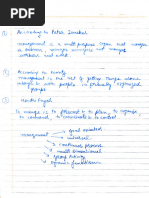 ① According to Peter Drucker
management is a multi-purpose organ that manages
a business, manages managers and manages
workers and work.
② According to
management is the art of getting things done
through with people in formally organised
groups.
③ Henri Fayol
To manage is to forecast to to plan, to organise,
to command, to coordinate & to control
management → goal oriented
→ universal
→ continuous process
→ multi dimensional
→ group activity
→ dynamic function